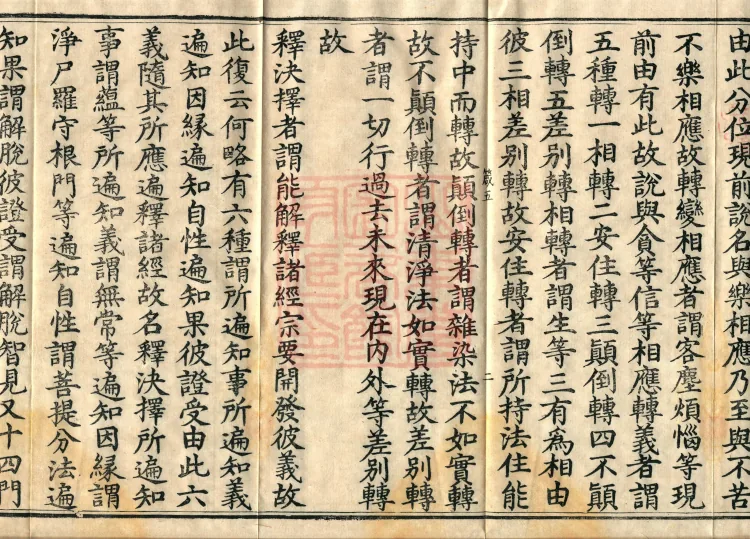 由此分位現前說名與樂相應乃至與不苦
不樂相應故轉變相應者謂客塵煩惱等現
前由有此故說與貪等信等相應轉義者謂
五種轉一相轉二安住轉三顛倒轉四不顛
倒轉五差別轉相轉者謂生等三有為相由
彼三相差別轉故安住轉者謂所持法住能
持中而轉故顛倒轉者謂雜染法不如實轉
故不顛倒轉者謂清淨法如實轉故差別轉
者謂一切行過去未來現在內外等差別轉
故
釋決擇者謂能解釋諸經宗要開發彼義故
此復云何略有六種謂所遍知事所遍知義
遍知因緣遍知自性遍知果彼證受由此六
義隨其所應遍釋諸經故名釋決擇所遍知
事謂蘊等所遍知義謂無常等遍知因緣謂
淨尸羅守根門等遍知自性謂菩提分法遍
知果謂解脫彼證受謂解脫智見又十四門